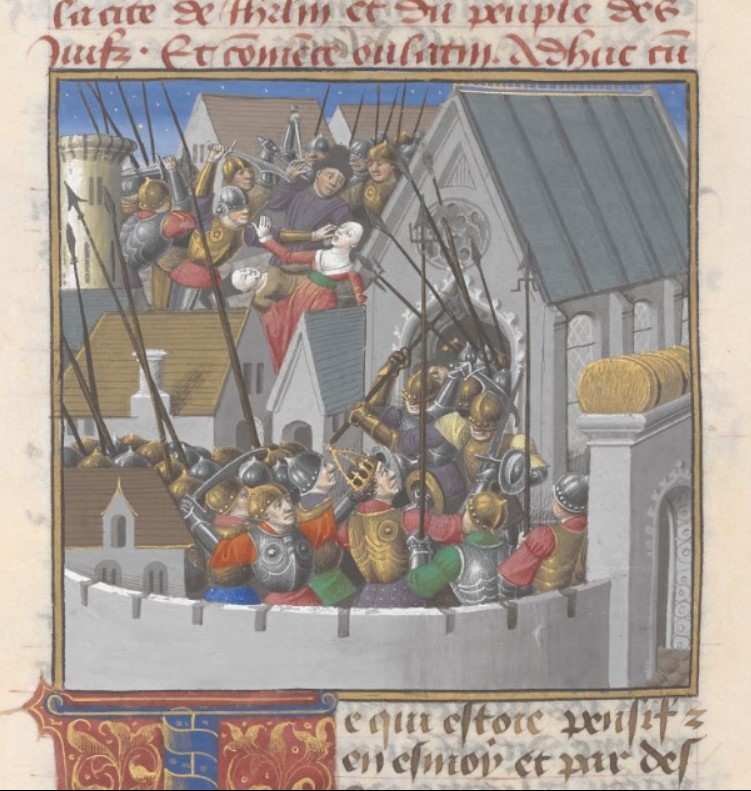 la cite de Jhrlm et du peuple des
Juifz. Et cōmēce ou latin. Adhuc cū
e qui estoie pensif z
en esmoy et par des